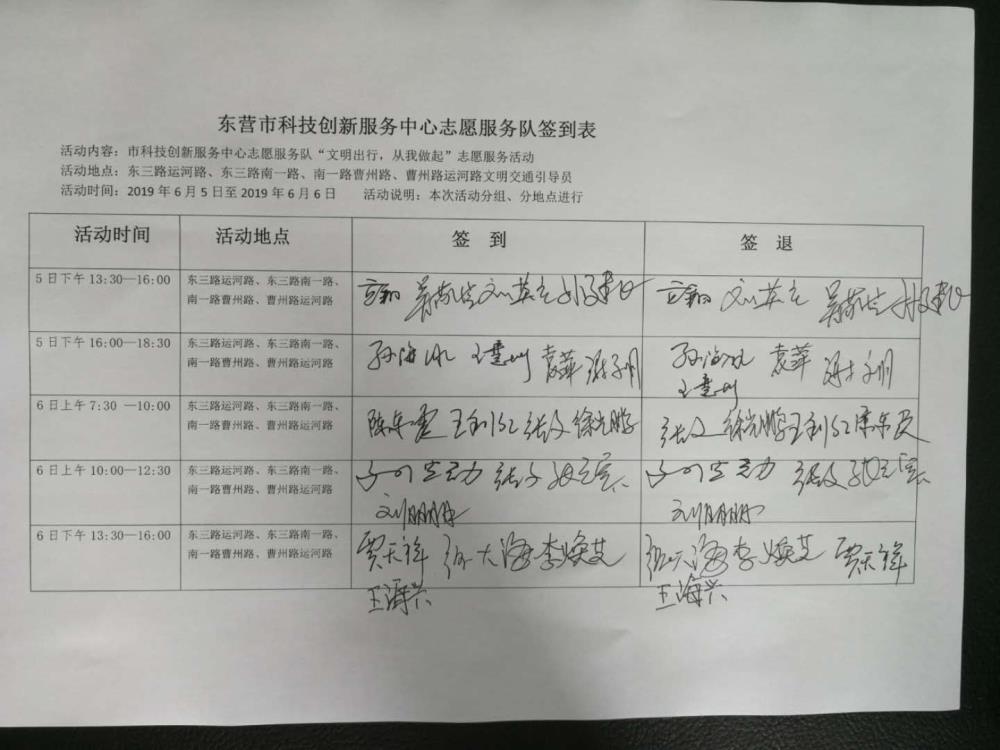 东营市科技创新服务中心志愿服务队签到表
活动内容：市科技创新服务中心志愿服务队“文明出行，从我做起”志愿服务活动
活动地点：东三路运河路、东三路南一路、南一路曹州路、曹州路运河路文明交通引导员
活动时间：2019 年 6 月 5 日至 2019 年 6 月 6 日 活动说明：本次活动分组、分地点进行
活动时间 活动地点 签 到 签 退
5 日下午 13:30—16:00 东三路运河路、东三路南一路、
南一路曹州路、曹州路运河路
刘英之
刘英之
5 日下午 16:00—18:30 东三路运河路、东三路南一路、
南一路曹州路、曹州路运河路
孙海 袁萍
孙海 袁萍
6 日上午 7:30 —10:00 东三路运河路、东三路南一路、
南一路曹州路、曹州路运河路
王利红 徐光鹏
徐光鹏 王利红
6 日上午 10:00—12:30 东三路运河路、东三路南一路、
南一路曹州路、曹州路运河路
刘朋朋
刘朋朋
6 日下午 13:30—16:00 东三路运河路、东三路南一路、
南一路曹州路、曹州路运河路
贾天祥 大海 李焕芝
王海兴
大海 李焕芝 贾天祥
王海兴